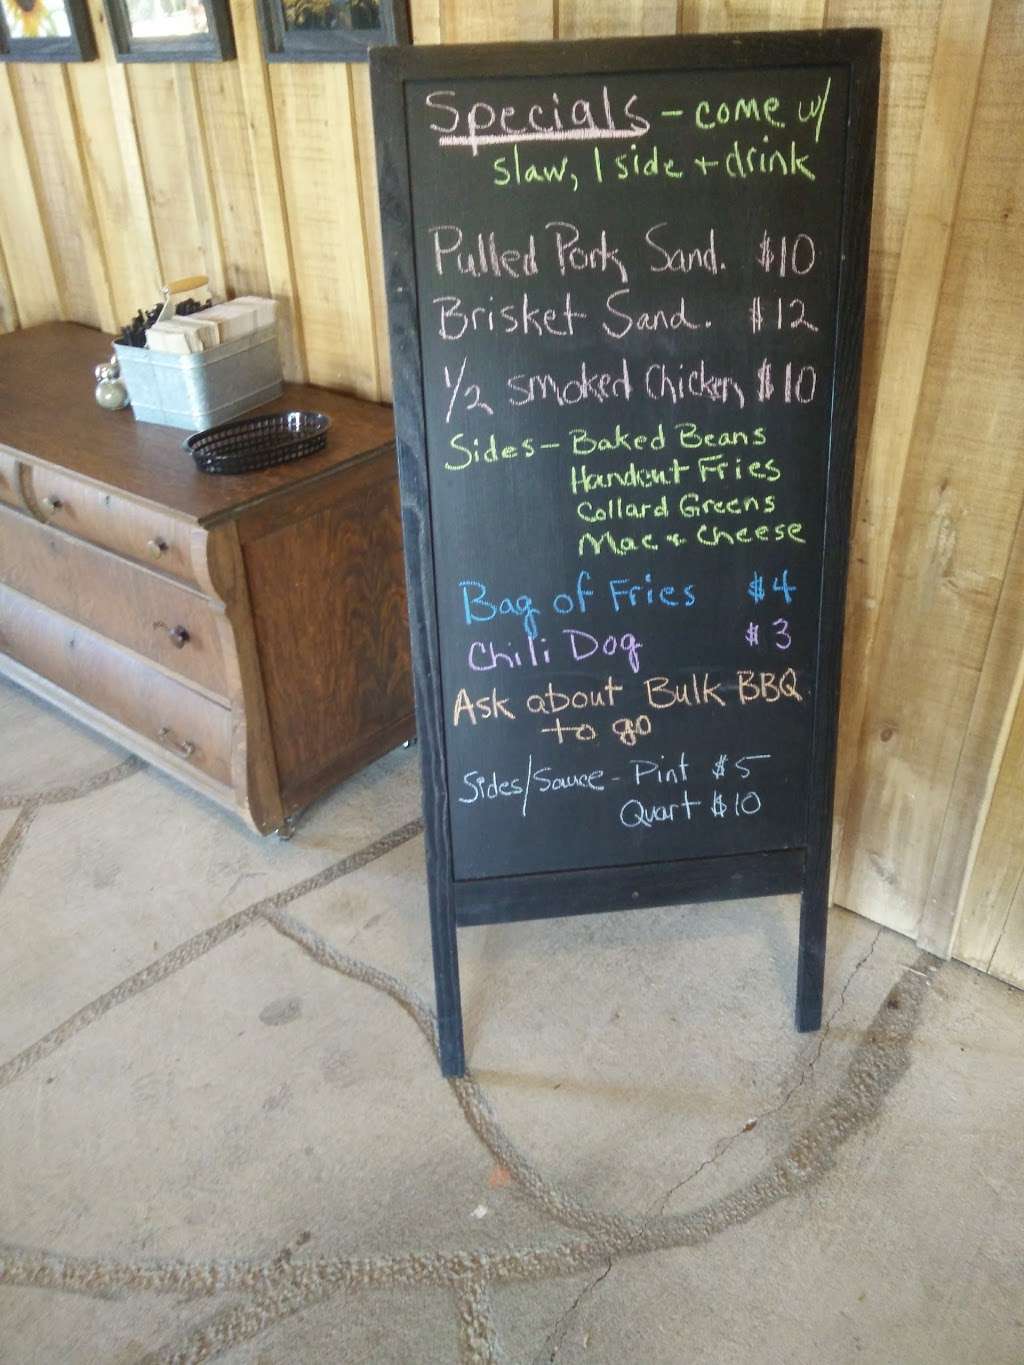 Specials - come w/
slaw, 1 side + drink
Pulled Pork Sand. $10
Brisket Sand. $12
1/2 smoked Chicken $10
Sides - Baked Beans
Handcut Fries
Collard Greens
Mac + Cheese
Bag of Fries $4
Chili Dog $3
Ask about Bulk BBQ
to go
Sides/Sauce - Pint $5
Quart $10